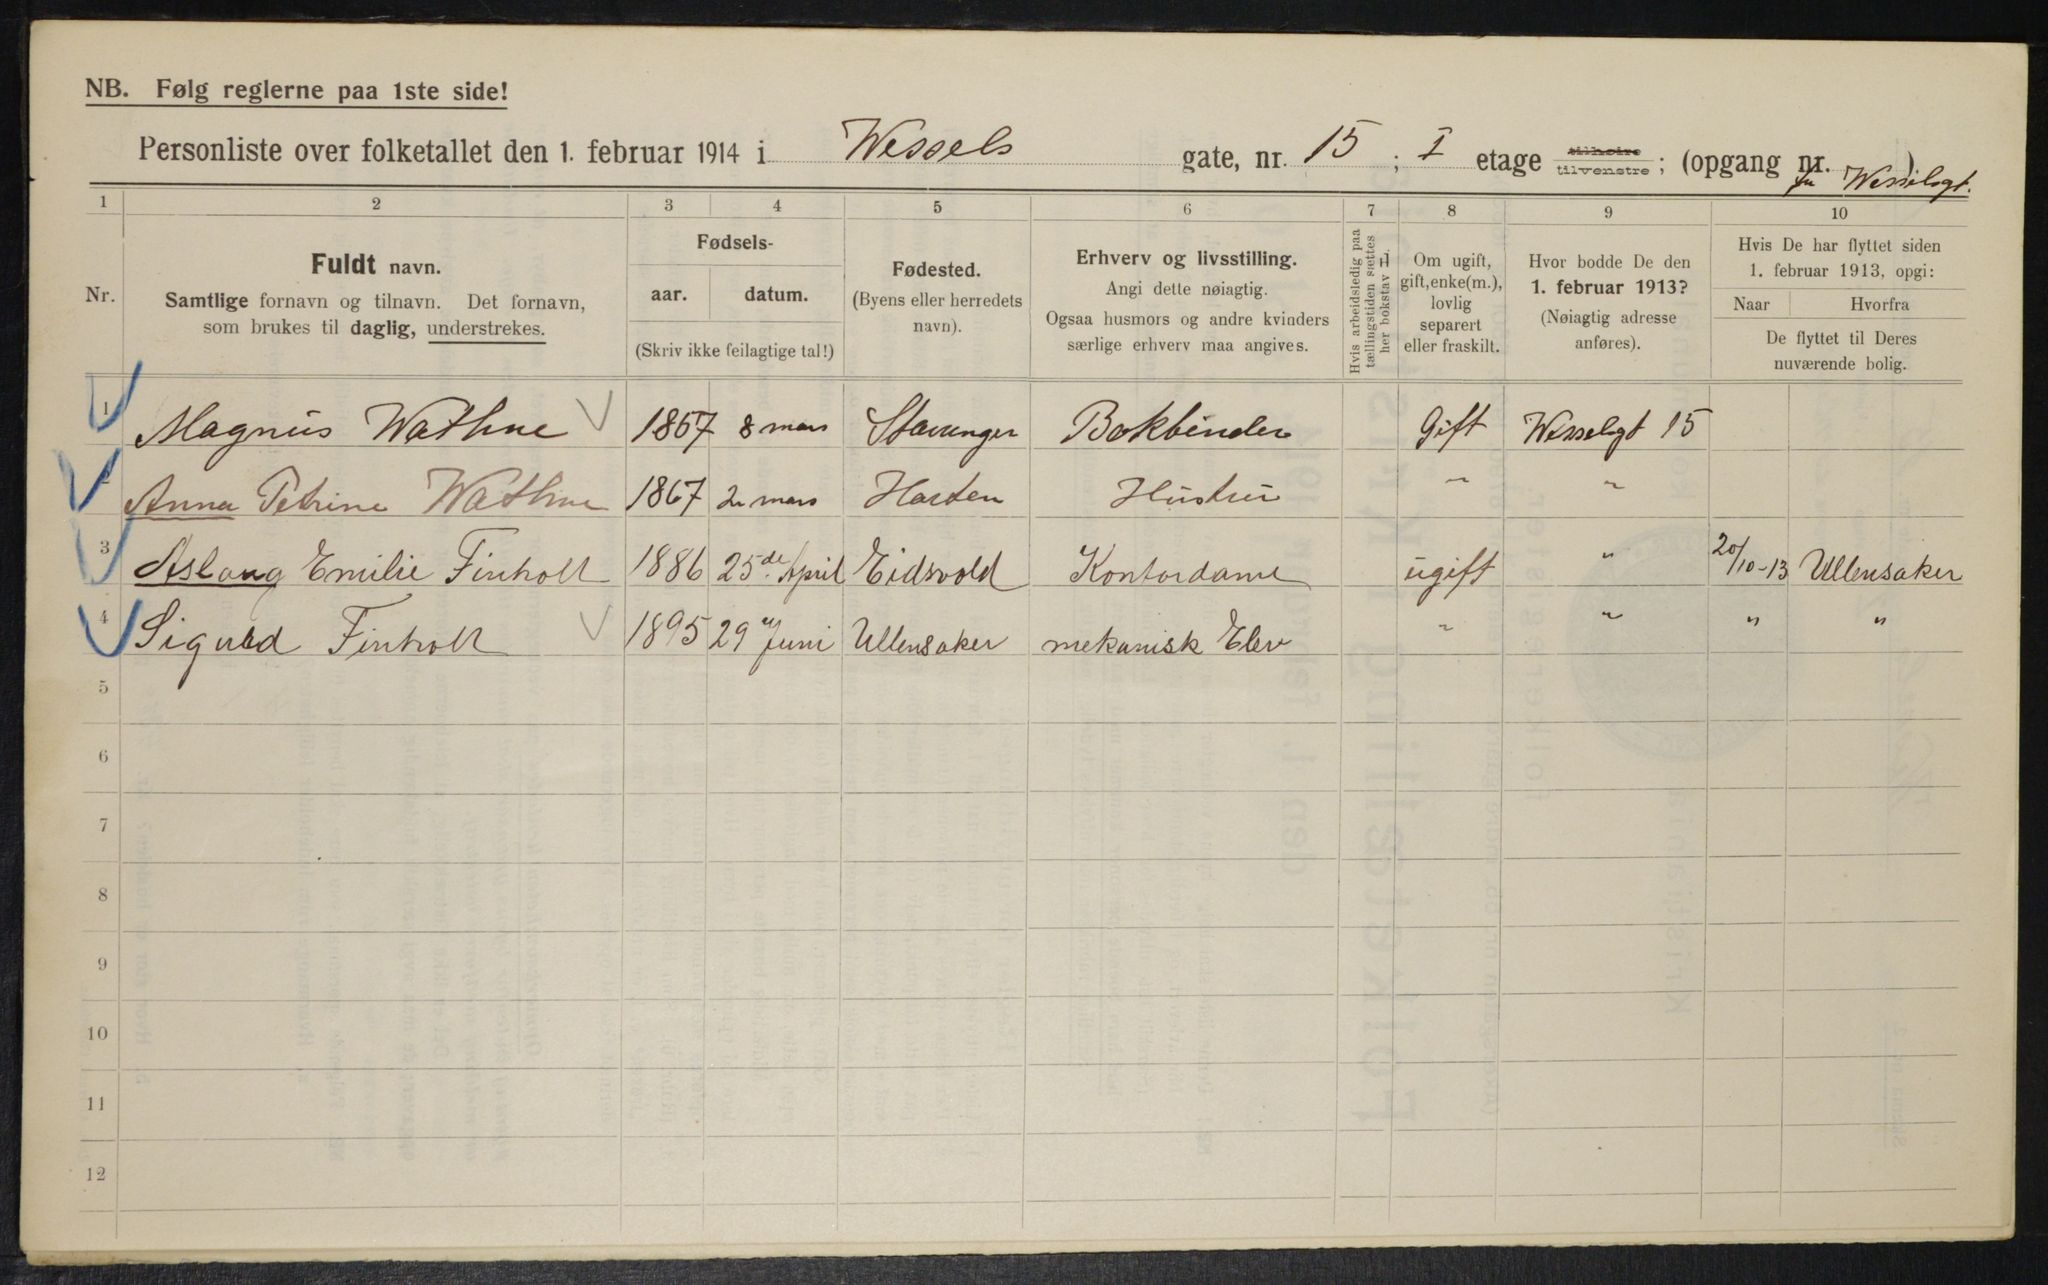 NB. Følg reglerne paa 1ste side!
Personliste over folketallet den 1. februar 1914 i Wessels gate, nr. 15; I etage tilhøire tilvenstre; (opgang nr. )
Wesselsgt.
1 2 3 4 5 6 7 8 9 10
Nr.
Fuldt navn.
Samtlige fornavn og tilnavn. Det fornavn,
som brukes til daglig, understrekes.
Fødsels-
aar. datum.
(Skriv ikke feilagtige tal!)
Fødested.
(Byens eller herredets
navn).
Erhverv og livsstilling.
Angi dette nøiagtig.
Ogsaa husmors og andre kvinders
særlige erhverv maa angives.
Hvis arbeidsledig paa
tællingstiden sættes
her bokstav L
Om ugift,
gift, enke(m.),
lovlig
separert
eller fraskilt.
Hvor bodde De den
1. februar 1913?
(Nøiagtig adresse
anføres).
Hvis De har flyttet siden
1. februar 1913, opgi:
Naar Hvorfra
De flyttet til Deres
nuværende bolig.
1 Magnus Wathne 1867 8 mars Stavanger Bokbinder Gift Wesselsgt 15
Anna Petrine Wathne 1867 2 mars Hustru " "
3 Aslaug Emilie Finholt 1886 25de April Eidsvold Kontordame ugift " 20/10-13 Ullensaker
4 Sigurd Finholt 1895 29 Juni Ullensaker mekanisk Elev " " " "
5
6
7
8
9
10
11
12